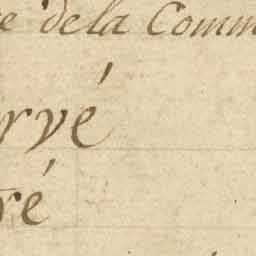 e dela Comm
rvé
ré